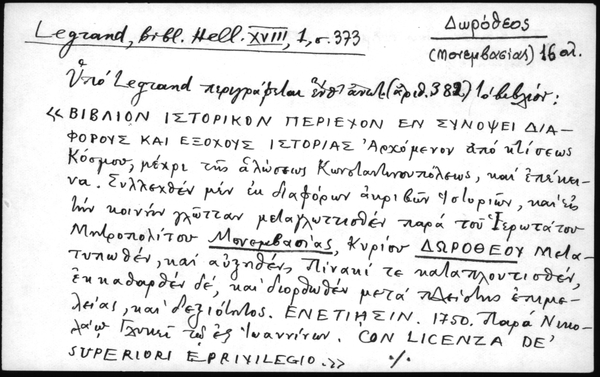 Legrand, bibl. Hell. XVIII, 1, σ. 373
Δωρόθεος
(Μονεμβασίας) 16 αἰ.
Ὑπό Legrand περιγράφεται (ἀριθ. 382) τό βιβλίον:
« ΒΙΒΛΙΟΝ ΙΣΤΟΡΙΚΟΝ ΠΕΡΙΕΧΟΝ ΕΝ ΣΥΝΟΨΕΙ ΔΙΑ-
ΦΟΡΟΥΣ ΚΑΙ ΕΞΟΧΟΥΣ ΙΣΤΟΡΙΑΣ Ἀρχόμενον ἀπό κτίσεως
Κόσμου, μέχρι τῆς ἁλώσεως Κωνσταντινουπόλεως, καί ἐπέκει-
να. Συλλεχθέν μέν ἐκ διαφόρων ἀκριβῶν Ἱστοριῶν, καί εἰς
τήν κοινήν γλῶτταν μεταγλωττισθέν παρά τοῦ Ἱερωτάτου
Μητροπολίτου Μονεμβασίας, Κυρίου ΔΩΡΟΘΕΟΥ Μετα-
τυπωθέν, καί αὐξηθέν, Πίνακί τε καταπλουτισθέν,
ἐκκαθαρθέν δέ, καί διορθωθέν μετά πλείστης ἐπιμε-
λείας, καί δεξιότητος. ΕΝΕΤΙΗΣΙΝ. 1750. Παρά Νικο-
λάῳ Γλυκεῖ τῷ ἐξ Ἰωαννίνων. CON LICENZA DE'
SUPERIORI E PRIVILEGIO. » ·/·